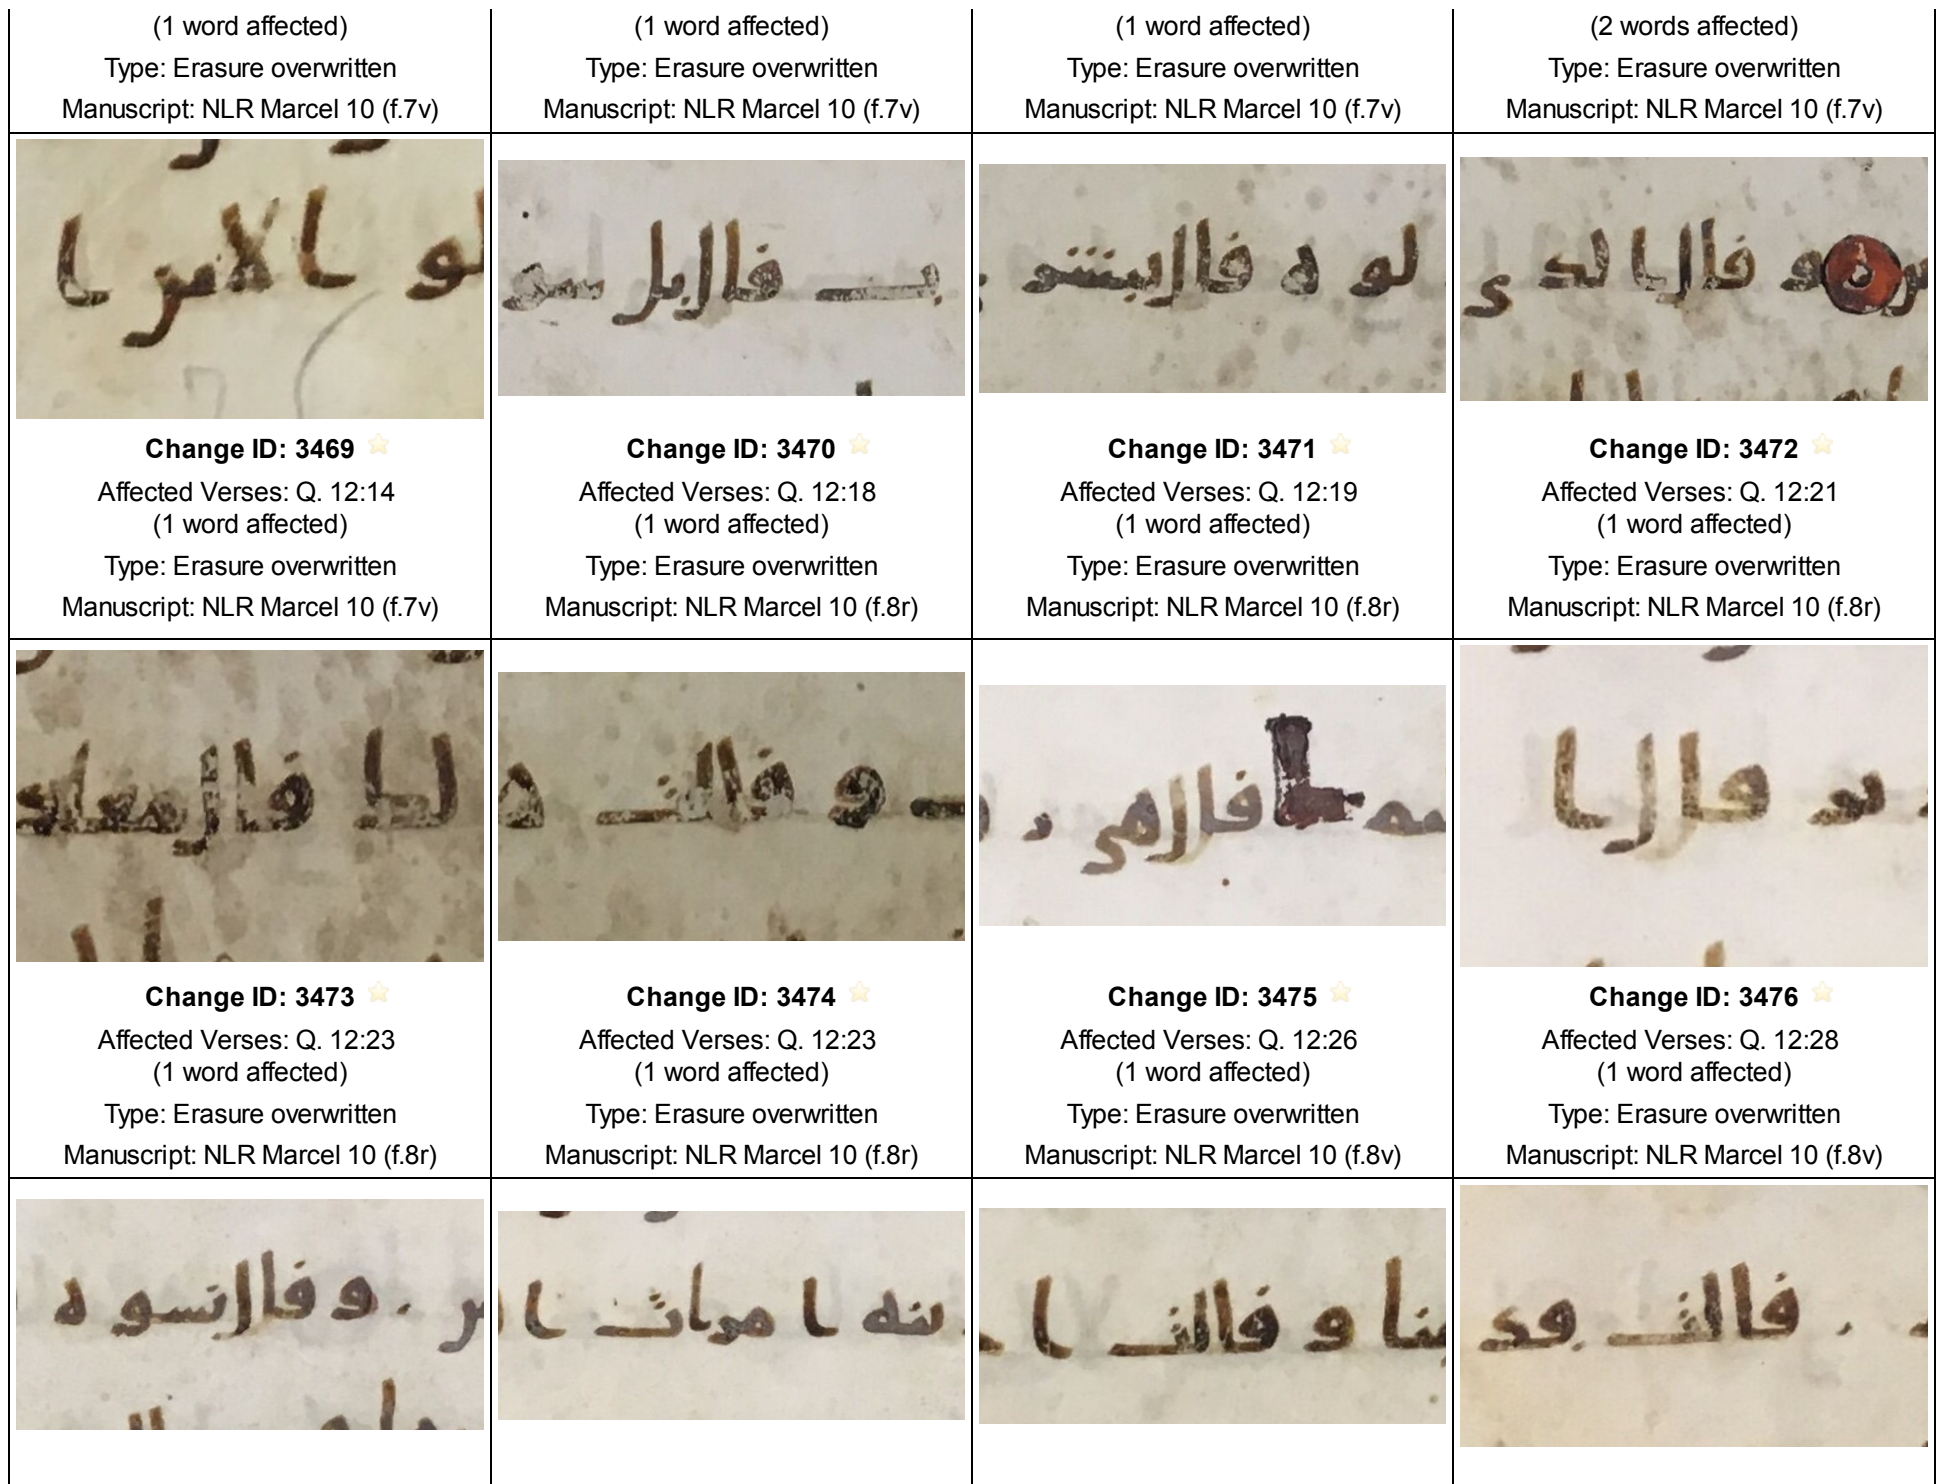 (1 word affected)
Type: Erasure overwritten
Manuscript: NLR Marcel 10 (f.7v)
(1 word affected)
Type: Erasure overwritten
Manuscript: NLR Marcel 10 (f.7v)
(1 word affected)
Type: Erasure overwritten
Manuscript: NLR Marcel 10 (f.7v)
(2 words affected)
Type: Erasure overwritten
Manuscript: NLR Marcel 10 (f.7v)
Change ID: 3469
Affected Verses: Q. 12:14
(1 word affected)
Type: Erasure overwritten
Manuscript: NLR Marcel 10 (f.7v)
قال بل سو
Change ID: 3470
Affected Verses: Q. 12:18
(1 word affected)
Type: Erasure overwritten
Manuscript: NLR Marcel 10 (f.8r)
لوه قال يبشر
Change ID: 3471
Affected Verses: Q. 12:19
(1 word affected)
Type: Erasure overwritten
Manuscript: NLR Marcel 10 (f.8r)
و قال الذي
Change ID: 3472
Affected Verses: Q. 12:21
(1 word affected)
Type: Erasure overwritten
Manuscript: NLR Marcel 10 (f.8r)
لك قال معاد
Change ID: 3473
Affected Verses: Q. 12:23
(1 word affected)
Type: Erasure overwritten
Manuscript: NLR Marcel 10 (f.8r)
و قالت ه
Change ID: 3474
Affected Verses: Q. 12:23
(1 word affected)
Type: Erasure overwritten
Manuscript: NLR Marcel 10 (f.8r)
قال هي ر
Change ID: 3475
Affected Verses: Q. 12:26
(1 word affected)
Type: Erasure overwritten
Manuscript: NLR Marcel 10 (f.8v)
قال ا
Change ID: 3476
Affected Verses: Q. 12:28
(1 word affected)
Type: Erasure overwritten
Manuscript: NLR Marcel 10 (f.8v)
و قال نسوه
امرات ا
و قالت ا
قالت فذ